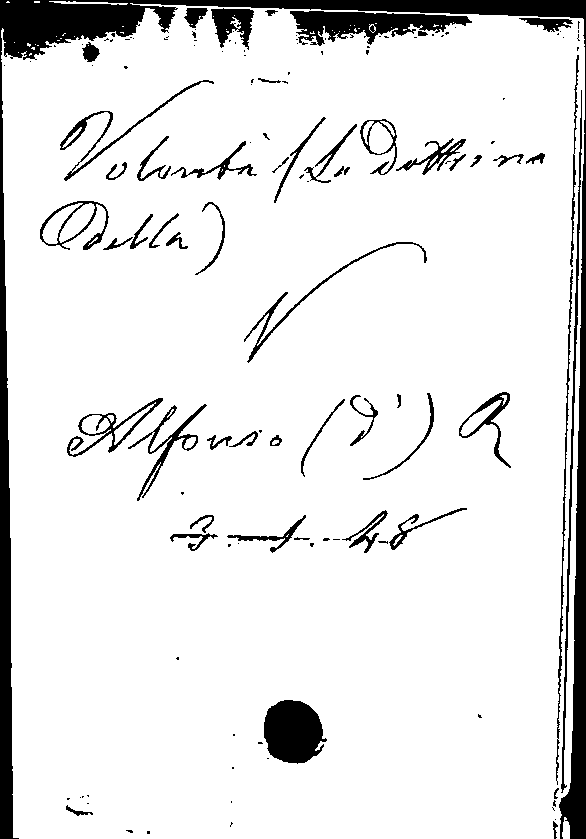 Volontà (La Dottrina
della)
V
Alfonso (d') R
3-1-48